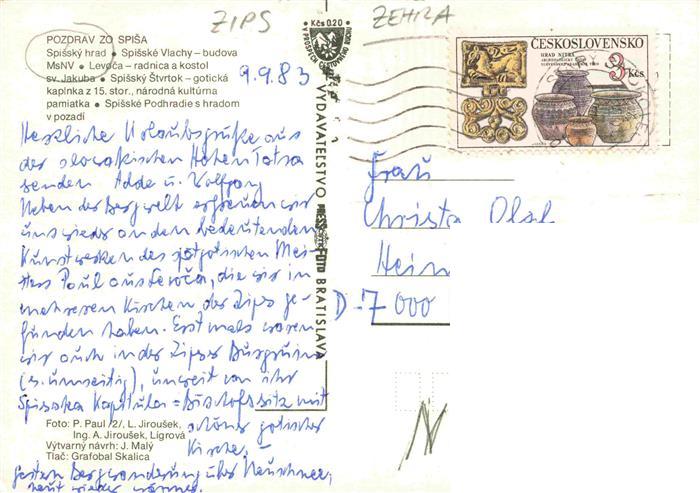 ZIPS
ZEHRA
POZDRAV ZO SPIŠA
Spišský hrad • Spišské Vlachy – budova
MsNV • Levoča – radnica a kostol
sv. Jakuba • Spišský Štvrtok – gotická
kaplnka z 15. stor., národná kultúrna
pamiatka • Spišské Podhradie s hradom
v pozadí
9.9.83
Kčs 0.20
ČESKOSLOVENSKO
3 Kčs
Herzliche Urlaubsgrüße aus
der slowakischen Hohen Tatra
senden Adda u. Wolfgang
Neben der Bergwelt erfreuen wir
uns wieder an den bedeutenden
Kunstwerken des spätgotischen Mei-
sters Paul aus Levoča, die wir in
mehreren Kirchen der Zips ge-
funden haben. Erstmals waren
wir auch in der Zipser Burgruine
(s. umseitig), unweit von ihr
Spisska Kapitula = Bischofssitz mit
schöner gotischer
Kirche. –
Gestern Bergwanderung über Neuschnee,
heut wieder wärmer.
VYDAVATEĽSTVO PRESSFOTO BRATISLAVA
Frau
Christa
Hein
D-7000
Foto: P. Paul /2/, L. Jiroušek,
Ing. A. Jiroušek, Ligrová
Výtvarný návrh: J. Malý
Tlač: Grafobal Skalica